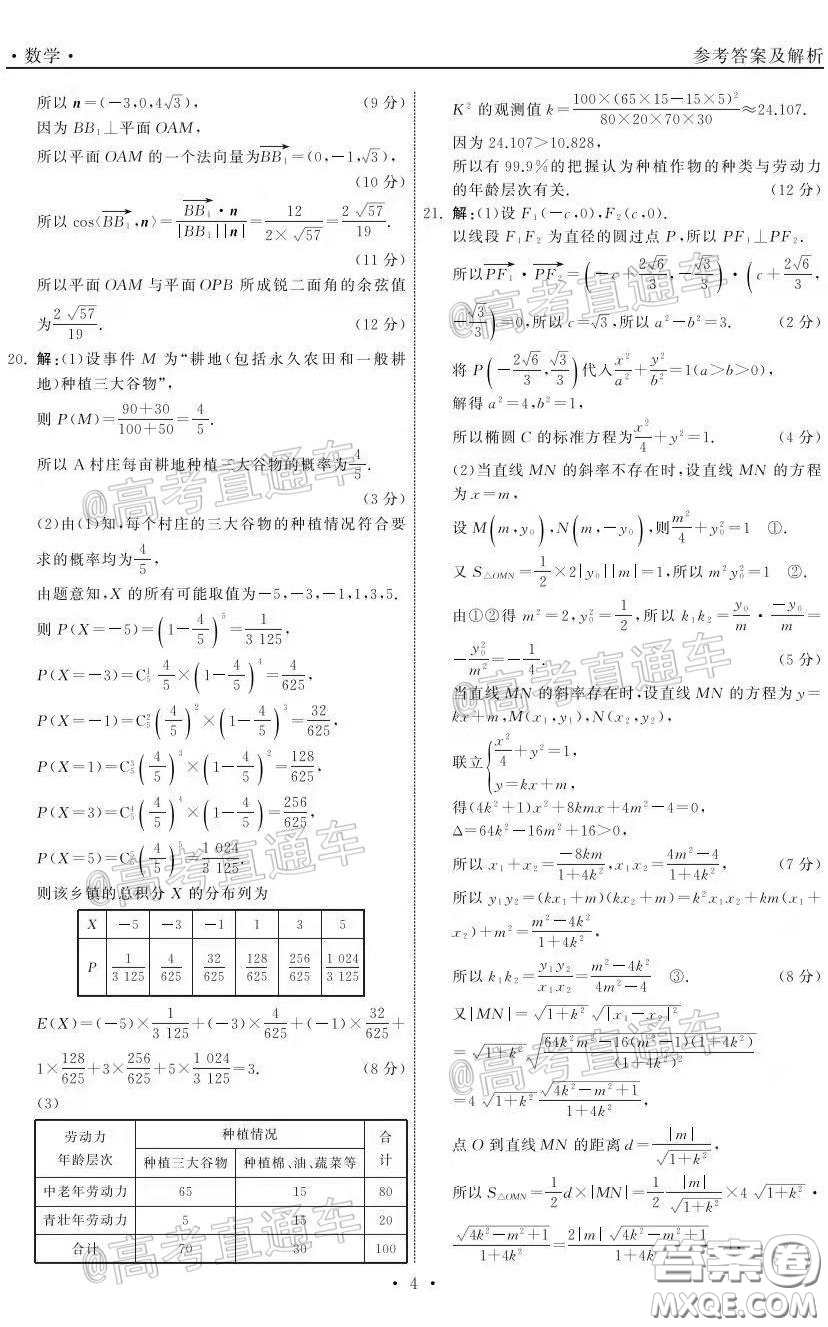 ·数学·
参考答案及解析
所以 n=(-3,0,4√3), (9 分)
因为 BB₁⊥平面 OAM,
所以平面 OAM 的一个法向量为BB₁→=(0,-1,√3),
(10 分)
所以 cos⟨BB₁→,n⟩=(BB₁→·n)/(|BB₁→||n|)=12/(2×√57)=2√57/19.
(11 分)
所以平面 OAM 与平面 OPB 所成锐二面角的余弦值
为2√57/19. (12 分)
20. 解:(1)设事件 M 为“耕地(包括永久农田和一般耕
地)种植三大谷物”,
则 P(M)=(90+30)/(100+50)=4/5.
所以 A 村庄每亩耕地种植三大谷物的概率为4/5.
(3 分)
(2)由(1)知,每个村庄的三大谷物的种植情况符合要
求的概率均为4/5,
由题意知,X 的所有可能取值为-5,-3,-1,1,3,5.
则 P(X=-5)=(1-4/5)⁵=1/3 125,
P(X=-3)=C₅¹ 4/5×(1-4/5)⁴=4/625,
P(X=-1)=C₅²(4/5)²×(1-4/5)³=32/625,
P(X=1)=C₅³(4/5)³×(1-4/5)²=128/625,
P(X=3)=C₅⁴(4/5)⁴×(1-4/5)=256/625,
P(X=5)=C₅⁵(4/5)⁵=1 024/3 125.
则该乡镇的总积分 X 的分布列为
X -5 -3 -1 1 3 5
P 1/3 125 4/625 32/625 128/625 256/625 1 024/3 125
E(X)=(-5)×1/3 125+(-3)×4/625+(-1)×32/625+
1×128/625+3×256/625+5×1 024/3 125=3. (8 分)
(3)
劳动力年龄层次 种植情况 合计
种植三大谷物 种植棉、油、蔬菜等
中老年劳动力 65 15 80
青壮年劳动力 5 15 20
合计 70 30 100
K² 的观测值 k=100×(65×15-15×5)²/(80×20×70×30)≈24.107.
因为 24.107>10.828,
所以有 99.9%的把握认为种植作物的种类与劳动力
的年龄层次有关. (12 分)
21. 解:(1)设 F₁(-c,0),F₂(c,0).
以线段 F₁F₂ 为直径的圆过点 P,所以 PF₁⊥PF₂.
所以PF₁→·PF₂→=(-c+2√6/3,-√3/3)·(c+2√6/3,
-√3/3)=0,所以 c=√3,所以 a²-b²=3. (2 分)
将 P(-2√6/3,√3/3)代入x²/a²+y²/b²=1(a>b>0),
解得 a²=4,b²=1,
所以椭圆 C 的标准方程为x²/4+y²=1. (4 分)
(2)当直线 MN 的斜率不存在时,设直线 MN 的方程
为 x=m,
设 M(m,y₀),N(m,-y₀),则m²/4+y₀²=1 ①.
又 S△OMN=1/2×2|y₀||m|=1,所以 m²y₀²=1 ②.
由①②得 m²=2,y₀²=1/2,所以 k₁k₂=y₀/m·-y₀/m=
-y₀²/m²=-1/4. (5 分)
当直线 MN 的斜率存在时,设直线 MN 的方程为 y=
kx+m,M(x₁,y₁),N(x₂,y₂),
联立{x²/4+y²=1, y=kx+m,
得(4k²+1)x²+8kmx+4m²-4=0,
Δ=64k²-16m²+16>0,
所以 x₁+x₂=-8km/(1+4k²),x₁x₂=(4m²-4)/(1+4k²), (7 分)
所以 y₁y₂=(kx₁+m)(kx₂+m)=k²x₁x₂+km(x₁+
x₂)+m²=(m²-4k²)/(1+4k²).
所以 k₁k₂=y₁y₂/x₁x₂=(m²-4k²)/(4m²-4) ③. (8 分)
又|MN|=√(1+k²) √(|x₁-x₂|²)
=√(1+k²)√((64k²m²-16(m²-1)(1+4k²))/(1+4k²)²)
=4 √(1+k²) √(4k²-m²+1)/(1+4k²),
点 O 到直线 MN 的距离 d=|m|/√(1+k²),
所以 S△OMN=1/2 d×|MN|=1/2 |m|/√(1+k²)×4 √(1+k²)·
√(4k²-m²+1)/(1+4k²)=2|m|√(4k²-m²+1)/(1+4k²)
·4·
@高考直通车
@高考直通车
@高考直通车
@高考直通车
@高考直通车
@高考直通车
@高考直通车
答案卷
MXQE.COM